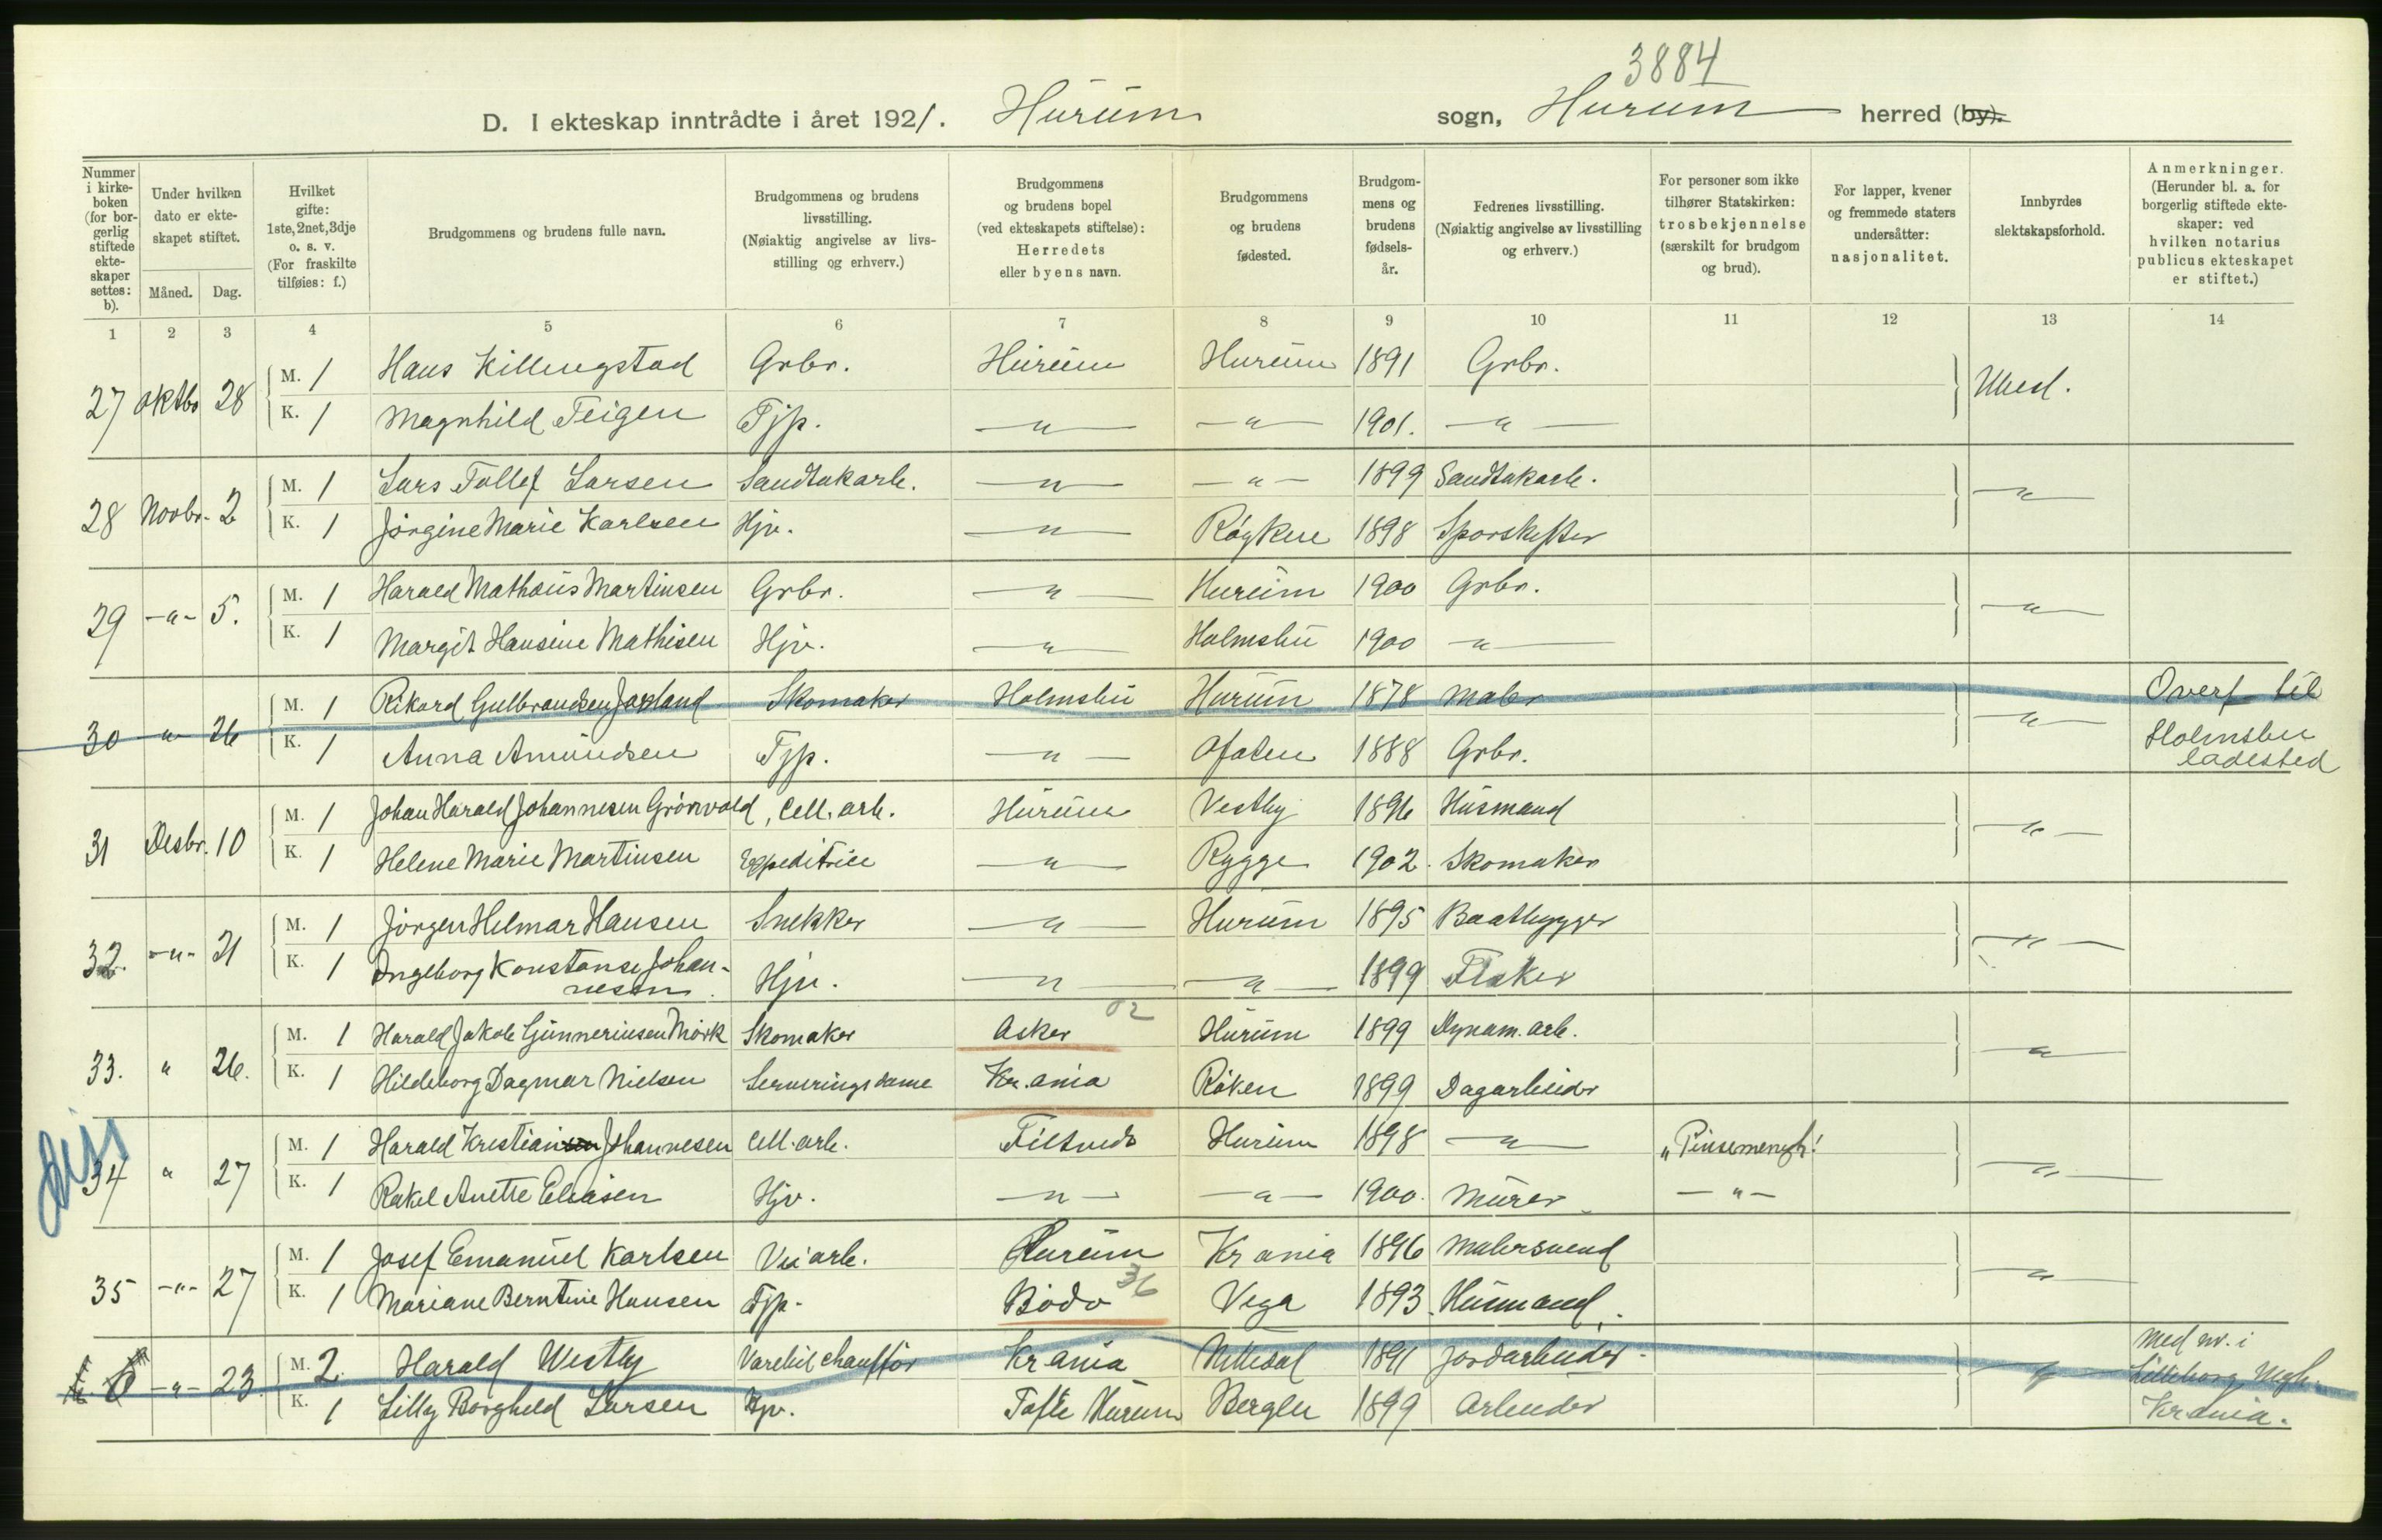 3884
D. I ekteskap inntrådte i året 1921. Hurum sogn, Hurum herred (by).
Nummer i kirkeboken (for borgerlig stiftede ekteskaper settes: b).
Under hvilken dato er ekteskapet stiftet.
Måned. Dag.
Hvilket gifte: 1ste, 2net, 3dje o. s. v. (For fraskilte tilføies: f.)
Brudgommens og brudens fulle navn.
Brudgommens og brudens livsstilling. (Nøiaktig angivelse av livsstilling og erhverv.)
Brudgommens og brudens bopel (ved ekteskapets stiftelse): Herredets eller byens navn.
Brudgommens og brudens fødested.
Brudgommens og brudens fødselsår.
Fedrenes livsstilling. (Nøiaktig angivelse av livsstilling og erhverv.)
For personer som ikke tilhører Statskirken: trosbekjennelse (særskilt for brudgom og brud).
For lapper, kvener og fremmede staters undersåtter: nasjonalitet.
Innbyrdes slektskapsforhold.
Anmerkninger. (Herunder bl. a. for borgerlig stiftede ekteskaper: ved hvilken notarius publicus ekteskapet er stiftet.)
1 2 3 4 5 6 7 8 9 10 11 12 13 14
27 Oktbr 28 M. 1 Hans Killingstad Grbr. Hurum Hurum 1891 Grbr. Ubesl.
K. 1 Magnhild Teigen Tjp. -"- -"- 1901. -"-
28 Novbr. 2 M. 1 Lars Tollef Larsen Sandtakarb. -"- -"- 1899 Sandtakarb. -"-
K. 1 Jørgine Marie Karlsen Hjv. -"- Røyken 1898 Sporskifter
29 -"- 5. M. 1 Harald Mathæus Martinsen Grbr. -"- Hurum 1900 Grbr. -"-
K. 1 Margit Hansine Mathisen Hjv. -"- Holmsbu 1900 -"-
30 -"- 26 M. 1 Rikard Gulbrandsen Joxland Skomaker Holmsbu Hurum 1878 Maler -"- Overf. til
K. 1 Anna Amundsen Tjp. -"- Ofoten 1888 Grbr. Holmsbu ladested
31 Desbr. 10 M. 1 Johan Harald Johannesen Grönvold, Cell. arb. Hurum Vestby 1896 Husmand -"-
K. 1 Helene Marie Martinsen Expeditrice -"- Rygge 1902. Skomaker
32. -"- 21 M. 1 Jörgen Helmar Hansen Snekker -"- Hurum 1895 Baatbygger -"-
K. 1 Ingeborg Konstanse Johannesen. Hjv. -"- -"- 1899 Fisker
02
33. " 26. M. 1 Harald Jakob Gunneriusen Mörk Skomaker Asker Hurum 1899 Dynam. arb. -"-
K. 1 Hildeborg Dagmar Nielsen Serveringsdame Kr.ania Röken 1899 Dagarbeider
Diss
34 " 27 M. 1 Harald Kristiansen Johannesen Cell. arb. Filtvedt Hurum 1898 -"- "Pinsemengh! -"-
K. 1 Rakel Anette Eliasen Hjv. -"- -"- 1900. Murer -"-
35 -"- 27 M. 1 Josef Emanuel Karlsen Veiarb. Hurum Kr ania 1896 Malersvend -"-
K. 1 Mariane Berntine Hansen Tjp. Bodø 36 Vega 1893. Husmand.
6 -"- 23. M. 2. Harald Westby Varebil chauffør Kr ania Nittedal 1891 Jordarbeider -"- Med nv. i
K. 1 Lilly Borghild Larsen Hjv. Tofte Hurum Bergen 1899 Arbeider Lilleborg Mgh. Kr ania.